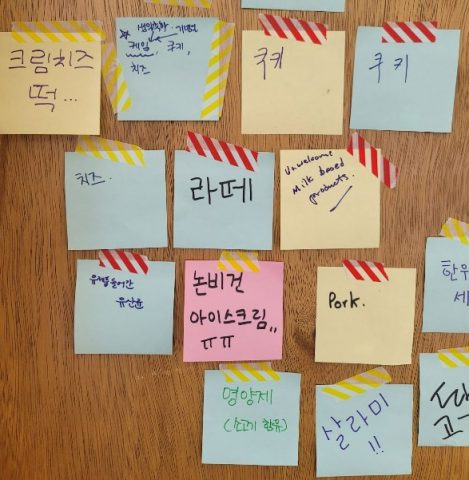 크림치즈
떡...
생일축하
케잌
치즈
쿠키
쿠키
치즈.
라떼
Unwelcome
Milk based
products.
유산균
논비건
아이스크림,,
ㅠㅠ
Pork.
한우
세
영양제
(소고기 함유)
살라미
!!